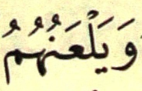 وَيَلْعَنُهُمُ